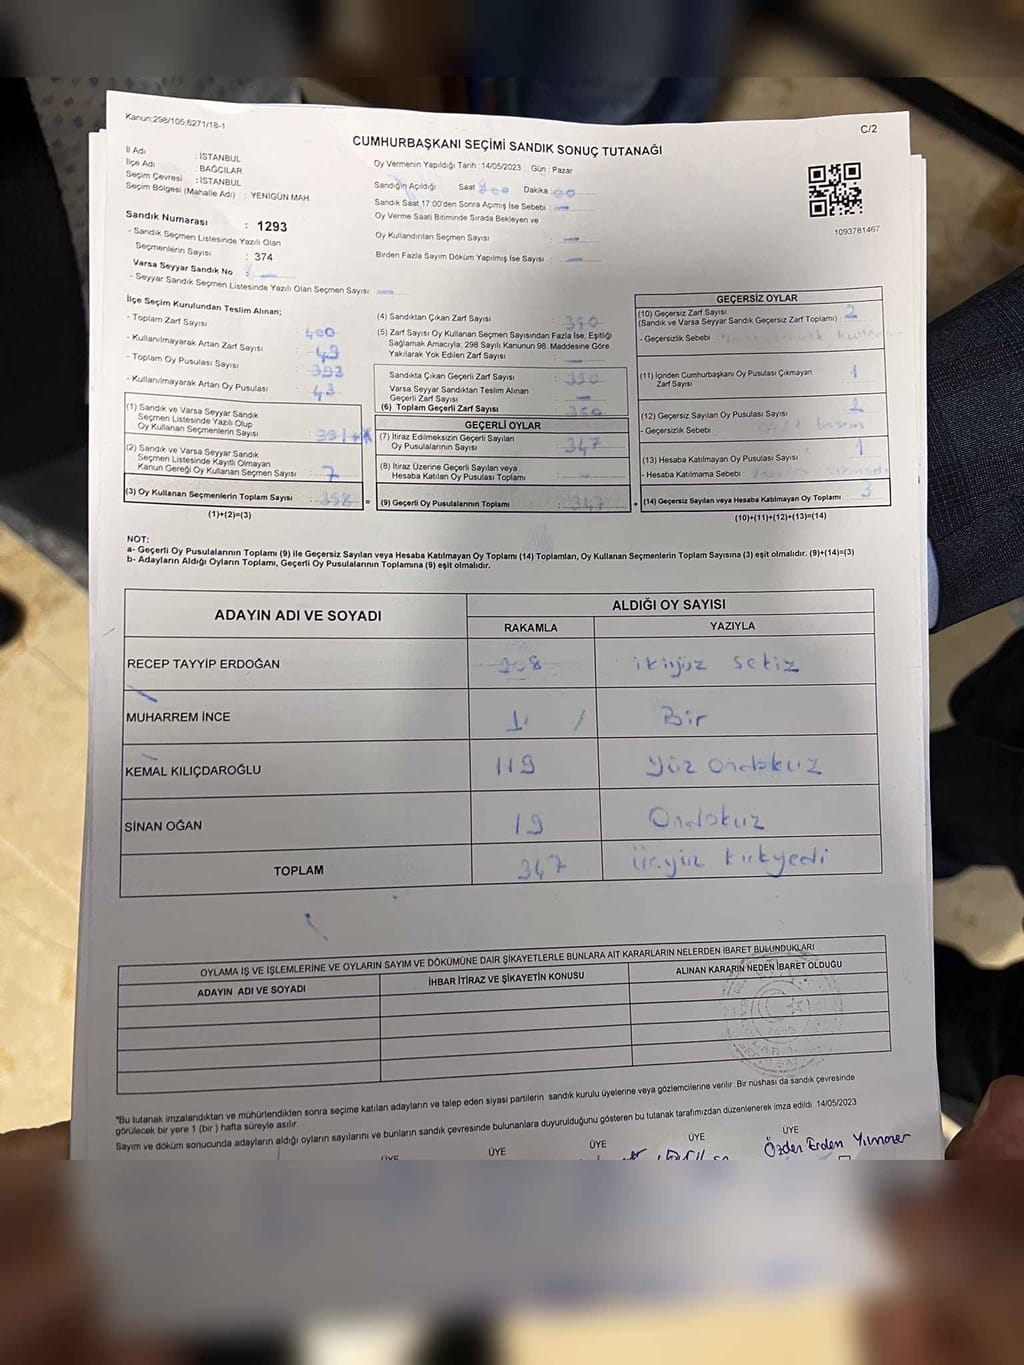 Kanun;298/105;6271/18-1
C/2
CUMHURBAŞKANI SEÇİMİ SANDIK SONUÇ TUTANAĞI
İl Adı : İSTANBUL
İlçe Adı : BAĞCILAR
Seçim Çevresi : İSTANBUL
Seçim Bölgesi (Mahalle Adı) : YENİGÜN MAH.
Sandık Numarası : 1293
- Sandık Seçmen Listesinde Yazılı Olan
Seçmenlerin Sayısı : 374
Varsa Seyyar Sandık No :
- Seyyar Sandık Seçmen Listesinde Yazılı Olan Seçmen Sayısı:
Oy Vermenin Yapıldığı Tarih : 14/05/2023 Gün : Pazar
Sandığın Açıldığı Saat Dakika :
Sandık Saat 17:00'den Sonra Açımış İse Sebebi :
Oy Verme Saati Bitiminde Sırada Bekleyen ve
Oy Kullandırılan Seçmen Sayısı :
Birden Fazla Sayım Döküm Yapılmış İse Sayısı :
1093781467
İlçe Seçim Kurulundan Teslim Alınan;
- Toplam Zarf Sayısı : 400
- Kullanılmayarak Artan Zarf Sayısı : 49
- Toplam Oy Pusulası Sayısı : 393
- Kullanılmayarak Artan Oy Pusulası : 43
(1) Sandık ve Varsa Seyyar Sandık
Seçmen Listesinde Yazılı Olup
Oy Kullanan Seçmenlerin Sayısı :
(2) Sandık ve Varsa Seyyar Sandık
Seçmen Listesinde Kayıtlı Olmayan
Kanun Gereği Oy Kullanan Seçmen Sayısı : 7
(3) Oy Kullanan Seçmenlerin Toplam Sayısı :
(1)+(2)=(3)
(4) Sandıktan Çıkan Zarf Sayısı : 350
(5) Zarf Sayısı Oy Kullanan Seçmen Sayısından Fazla İse, Eşitliği
Sağlamak Amacıyla; 298 Sayılı Kanunun 98. Maddesine Göre
Yakılarak Yok Edilen Zarf Sayısı :
Sandıkta Çıkan Geçerli Zarf Sayısı : 350
Varsa Seyyar Sandıktan Teslim Alınan
Geçerli Zarf Sayısı :
(6) Toplam Geçerli Zarf Sayısı : 350
GEÇERLİ OYLAR
(7) İtiraz Edilmeksizin Geçerli Sayılan
Oy Pusulalarının Sayısı : 347
(8) İtiraz Üzerine Geçerli Sayılan veya
Hesaba Katılan Oy Pusulası Toplamı :
= (9) Geçerli Oy Pusulalarının Toplamı : 347
GEÇERSİZ OYLAR
(10) Geçersiz Zarf Sayısı : 2
(Sandık ve Varsa Seyyar Sandık Geçersiz Zarf Toplamı)
- Geçersizlik Sebebi :
(11) İçinden Cumhurbaşkanı Oy Pusulası Çıkmayan : 1
Zarf Sayısı
(12) Geçersiz Sayılan Oy Pusulası Sayısı :
- Geçersizlik Sebebi :
(13) Hesaba Katılmayan Oy Pusulası Sayısı : 1
- Hesaba Katılmama Sebebi :
+ (14) Geçersiz Sayılan veya Hesaba Katılmayan Oy Toplamı : 3
(10)+(11)+(12)+(13)=(14)
NOT:
a- Geçerli Oy Pusulalarının Toplamı (9) ile Geçersiz Sayılan veya Hesaba Katılmayan Oy Toplamı (14) Toplamları, Oy Kullanan Seçmenlerin Toplam Sayısına (3) eşit olmalıdır. (9)+(14)=(3)
b- Adayların Aldığı Oyların Toplamı, Geçerli Oy Pusulalarının Toplamına (9) eşit olmalıdır.
ADAYIN ADI VE SOYADI
ALDIĞI OY SAYISI
RAKAMLA
YAZIYLA
RECEP TAYYİP ERDOĞAN 208 ikiyüz sekiz
MUHARREM İNCE 1 Bir
KEMAL KILIÇDAROĞLU 119 Yüz ondokuz
SİNAN OĞAN 19 Ondokuz
TOPLAM 347 Üçyüz kırkyedi
OYLAMA İŞ VE İŞLEMLERİNE VE OYLARIN SAYIM VE DÖKÜMÜNE DAİR ŞİKAYETLERLE BUNLARA AİT KARARLARIN NELERDEN İBARET BULUNDUKLARI
ADAYIN ADI VE SOYADI
İHBAR İTİRAZ VE ŞİKAYETİN KONUSU
ALINAN KARARIN NEDEN İBARET OLDUĞU
*Bu tutanak imzalandıktan ve mühürlendikten sonra seçime katılan adayların ve talep eden siyasi partilerin sandık kurulu üyelerine veya gözlemcilerine verilir. Bir nüshası da sandık çevresinde
görülecek bir yere 1 (bir) hafta süreyle asılır.
Sayım ve döküm sonucunda adayların aldığı oyların sayılarını ve bunların sandık çevresinde bulunanlara duyurulduğunu gösteren bu tutanak tarafımızdan düzenlenerek imza edildi. 14/05/2023
ÜYE ÜYE ÜYE ÜYE ÜYE
Özden Erden Yılmazer